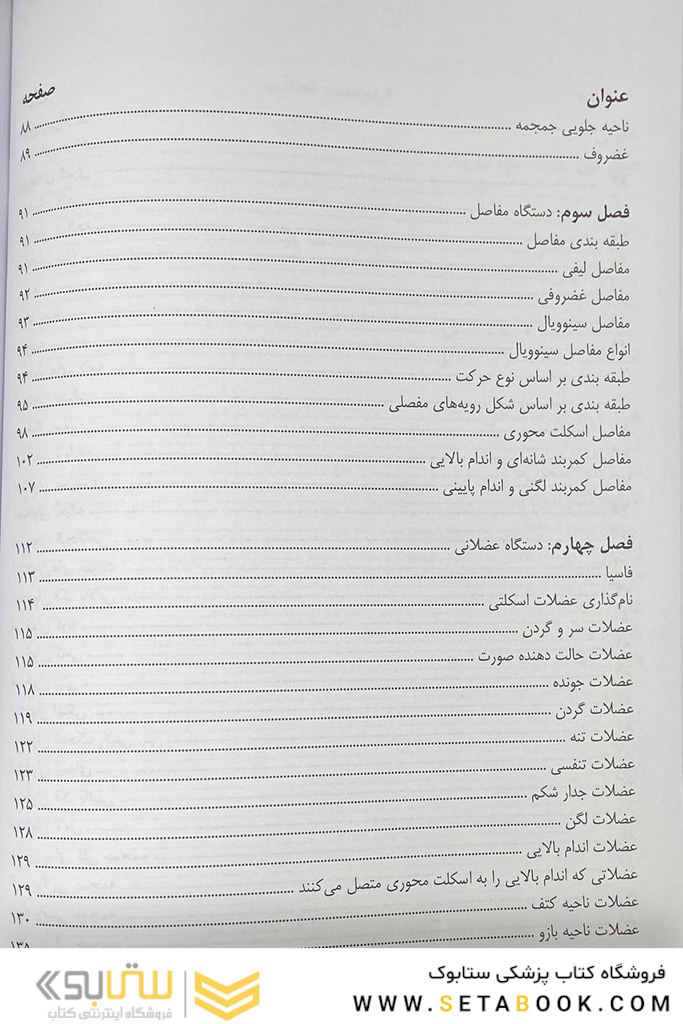 عنوان صفحه
ناحیه جلویی جمجمه ۸۸
غضروف ۸۹
فصل سوم: دستگاه مفاصل ۹۱
طبقه بندی مفاصل ۹۱
مفاصل لیفی ۹۱
مفاصل غضروفی ۹۲
مفاصل سینوویال ۹۳
انواع مفاصل سینوویال ۹۴
طبقه بندی بر اساس نوع حرکت ۹۴
طبقه بندی بر اساس شکل رویه‌های مفصلی ۹۵
مفاصل اسکلت محوری ۹۸
مفاصل کمربند شانه‌ای و اندام بالایی ۱۰۲
مفاصل کمربند لگنی و اندام پایینی ۱۰۷
فصل چهارم: دستگاه عضلانی ۱۱۲
فاسیا ۱۱۳
نام‌گذاری عضلات اسکلتی ۱۱۴
عضلات سر و گردن ۱۱۵
عضلات حالت دهنده صورت ۱۱۵
عضلات جونده ۱۱۸
عضلات گردن ۱۱۹
عضلات تنه ۱۲۲
عضلات تنفسی ۱۲۳
عضلات جدار شکم ۱۲۵
عضلات لگن ۱۲۸
عضلات اندام بالایی ۱۲۹
عضلاتی که اندام بالایی را به اسکلت محوری متصل می‌کنند ۱۲۹
عضلات ناحیه کتف ۱۳۰
عضلات ناحیه بازو
فروشگاه کتاب پزشکی ستابوک
WWW.SETABOOK.COM
ستابوک
فروشگاه اینترنتی کتاب